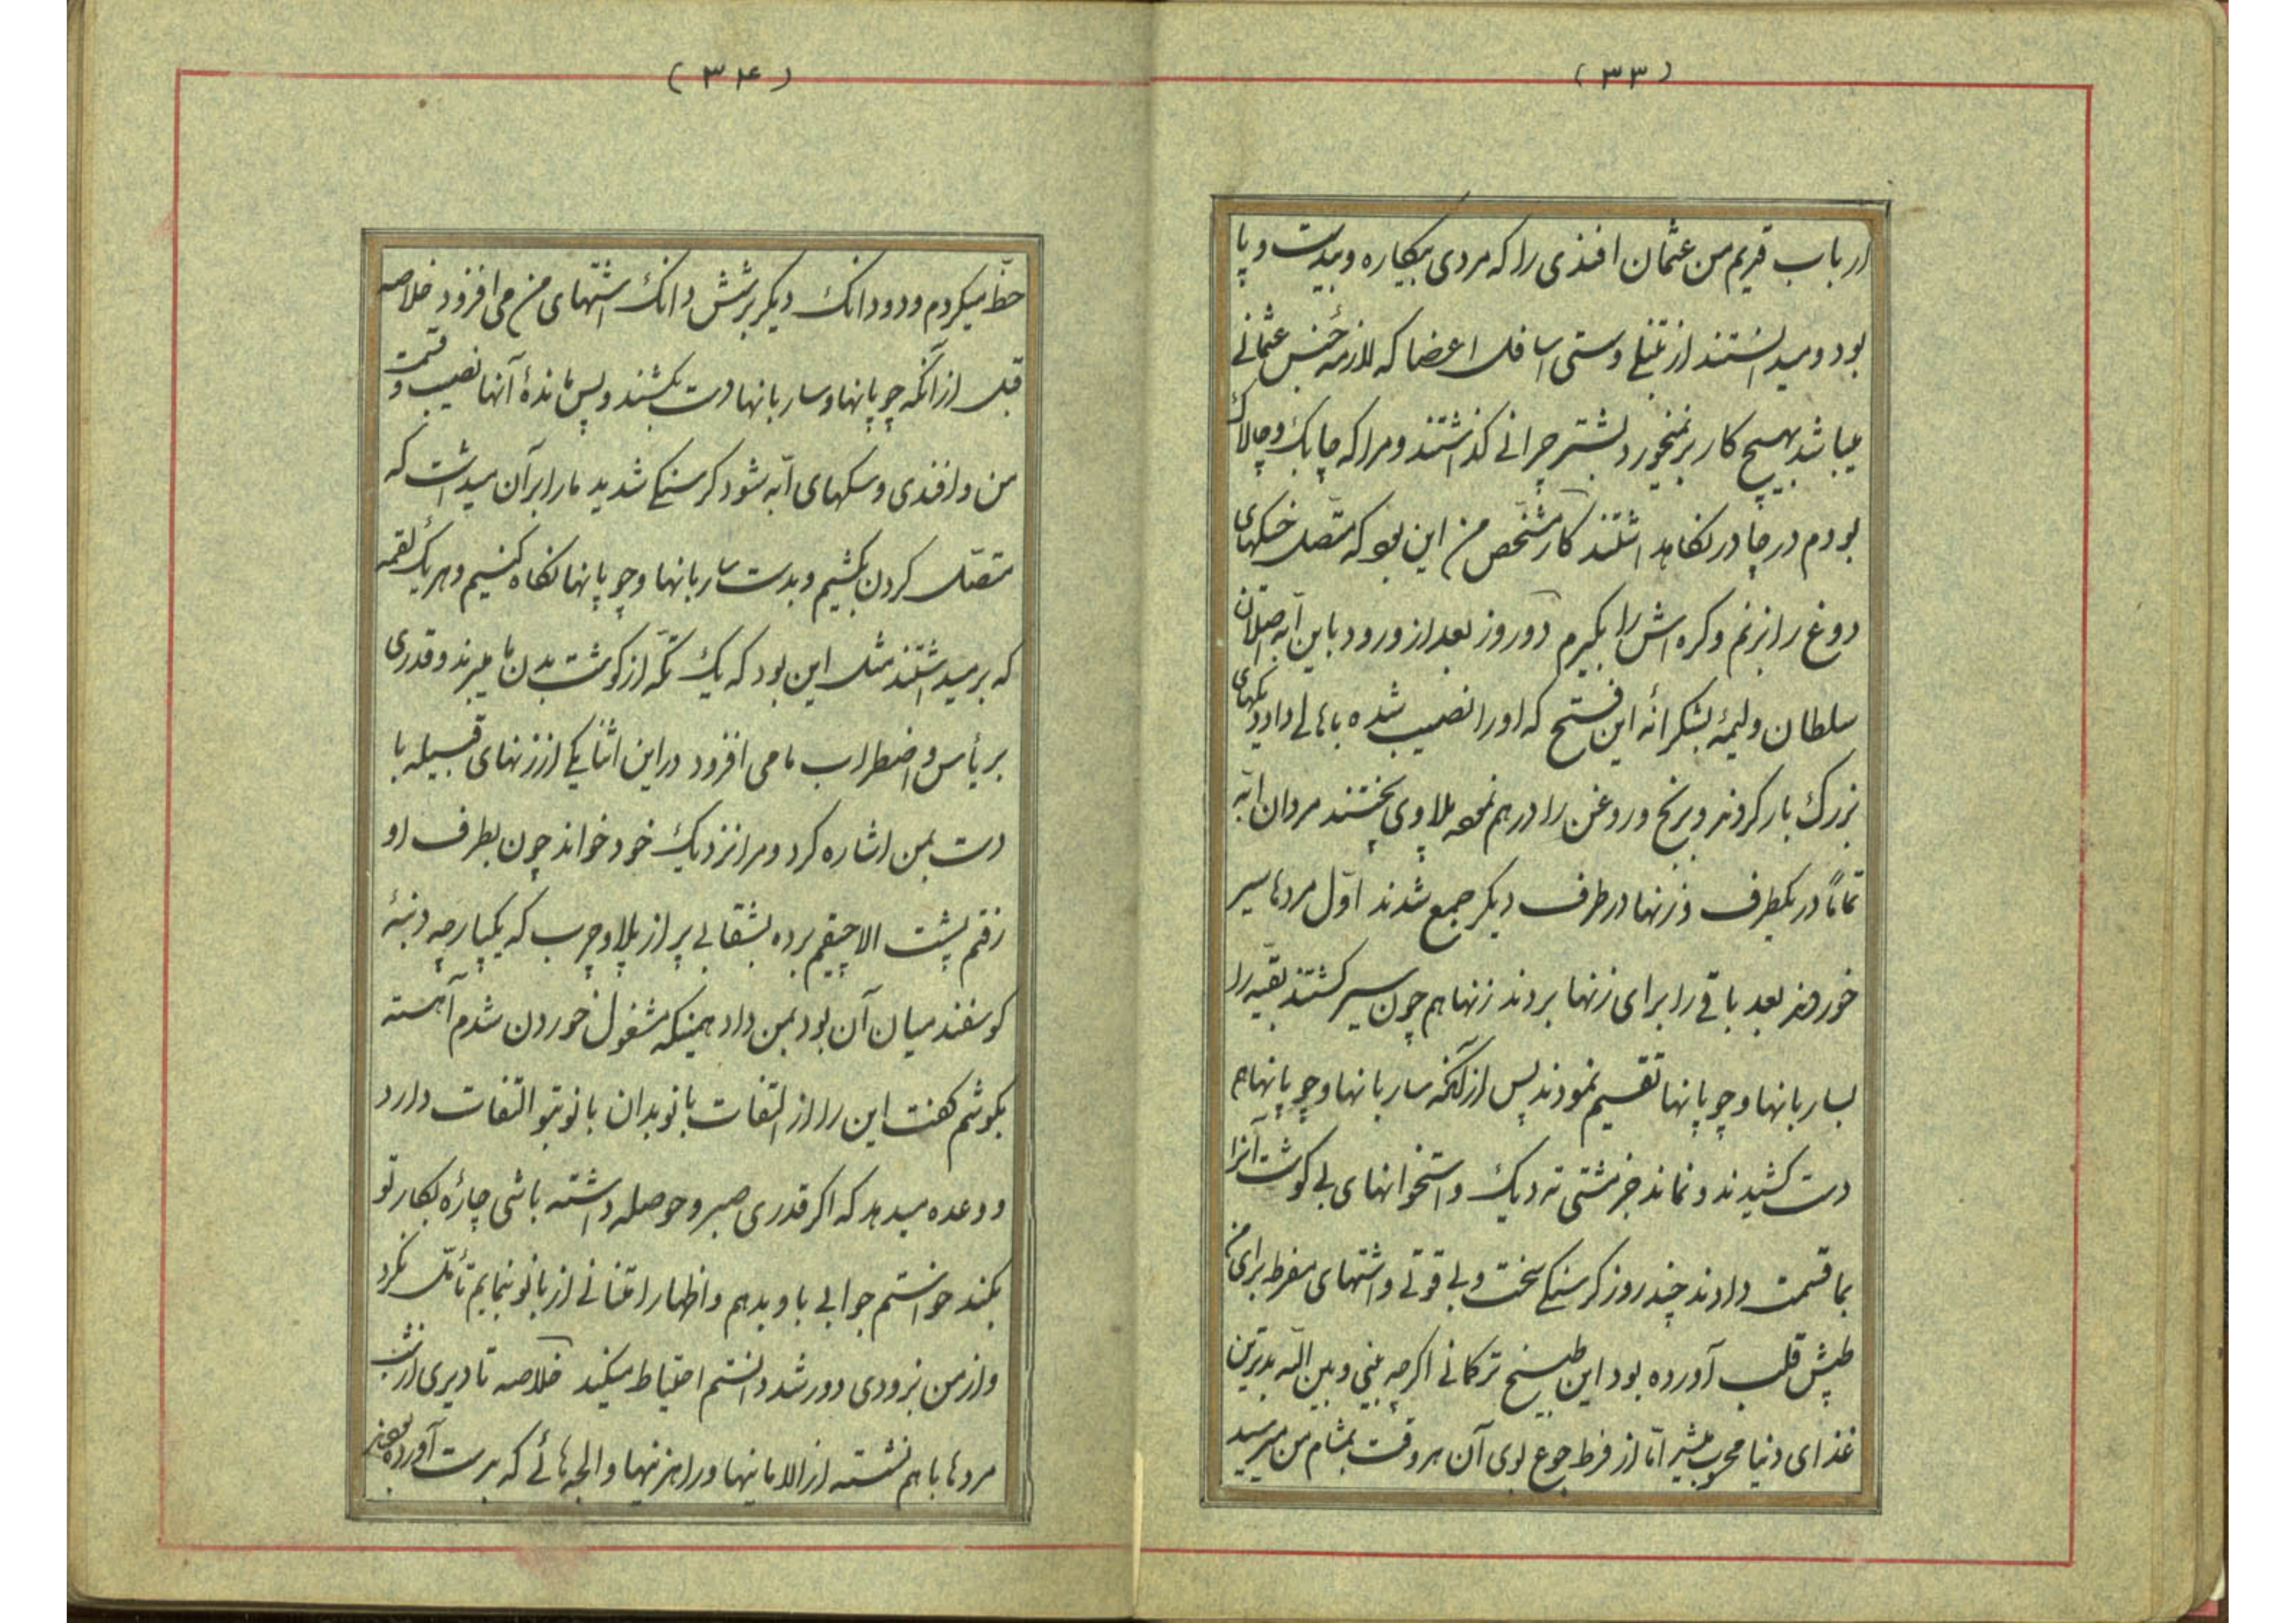 (۳۳)
ارباب قدیم من عثمان افندی را که مردی بیکاره و بیدست و پا
بود و میدانستند از تنبلی و سستی اسافل اعضا که لازمهٔ جنس عثمانی
میباشد بهیچ کار برنمیخورد بشتر چرانی گذاشتند و مرا که چابک و چالاک
بودم در چادر نگاهداشتند کار مشخص من این بود که متصل خیکهای
دوغ را بزنم و کره اش را بگیرم دو روز بعد از ورود باین آبه اصلان
سلطان ولیمهٔ بشکرانه این فتح که او را نصیب شده باهالی داد دیکهای
بزرک بار کردند و برنج و روغن را در هم نموده پلاوی پختند مردان ابّه
تماماً در یکطرف و زنها در طرف دیکر جمع شدند اوّل مردها سیر
خوردند بعد باقی را برای زنها بردند زنها هم چون سیر کشتند بقیه را
بساربانها و چوپانها تقسیم نمودند پس از آنکه ساربانها و چوپانها هم
دست کشیدند و نماند جز مشتی ته دیک و استخوانهای بی کوشت آنرا
بما قسمت دادند چند روز کرسنکی سخت و بی قوتی و اشتهای مفرط برای من
طپش قلب آورده بود این طبیخ ترکمانی اکرچه بینی و بین الله بدترین
غذای دنیا محسوب میشد امّا از فرط جوع بوی آن هر وقت بمشام من میرسید
(۳۴)
حظّ میکردم و دو دانک دیکر بر شش دانک اشتهای من می افزود خلاصه
قبل از آنکه چوپانها و ساربانها دست بکشند و پس ماندهٔ آنها نصیب و قسمت
من و افندی و سکهای ابّه شود کرسنکی شدید ما را بر آن میداشت که
متصل کردن بکشیم و بدست ساربانها و چوپانها نکاه کنیم و هر یک لقمه
که برمیداشتند مثل این بود که یک تکّه از کوشت بدن ما میبرند و قدری
بر یأس و اضطراب ما می افزود در این اثنا یکی از زنهای قبیله با
دست بمن اشاره کرد و مرا نزدیک خود خواند چون بطرف او
رفتم پشت الاچیقم برده بشقابی پر از پلاو چرب که یکپارچه دنبهٔ
کوسفند میان آن بود بمن داد همینکه مشغول خوردن شدم آهسته
بکوشم کفت این را از التفات بانو بدان بانو بتو التفات دارد
و وعده میدهد که اکر قدری صبر و حوصله داشته باشی چارهٔ بکار تو
بکند خواستم جوابی باو بدهم و اظهار امتنانی از بانو بنمایم تأمّل نکرد
و از من بزودی دور شد دانستم احتیاط میکند خلاصه تا دیری از شب
مردها با هم نشسته از الامانیها و راهزنیها و الجه هائی که بدست آورده بودند